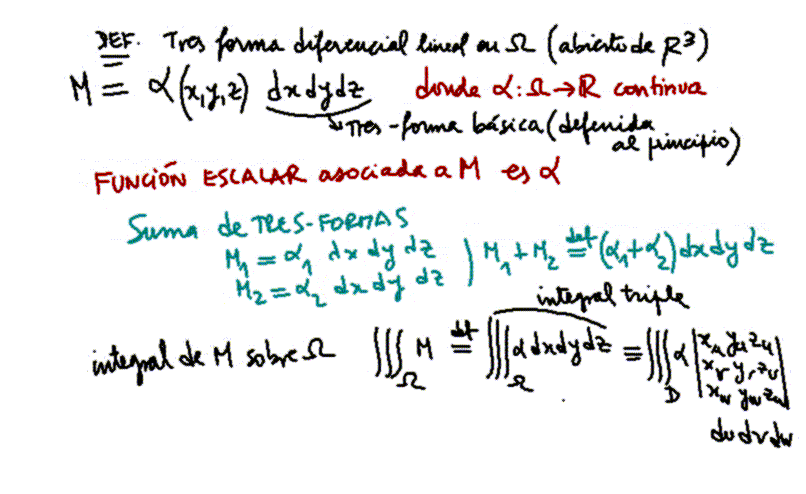 DEF. Tres forma diferencial lineal en Ω (abierto de R³)
M = α(x,y,z) dx dy dz donde α: Ω → R continua
↳ Tres-forma básica (defenida
al principio)
FUNCIÓN ESCALAR asociada a M es α
Suma de TRES-FORMAS
M₁ = α₁ dx dy dz
M₂ = α₂ dx dy dz
) M₁ + M₂ ≝ (α₁+α₂) dx dy dz
integral triple
integral de M sobre Ω ∭_Ω M ≝ ∭_Ω α dx dy dz ≡ ∭_D α | x_u y_u z_u
x_v y_v z_v
x_w y_w z_w |
du dv dw